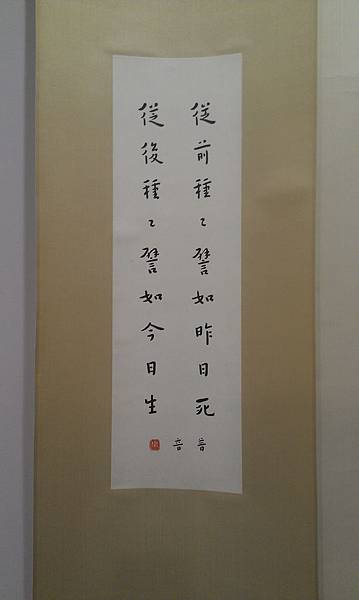 從前種々譬如昨日死
從後種々譬如今日生
音